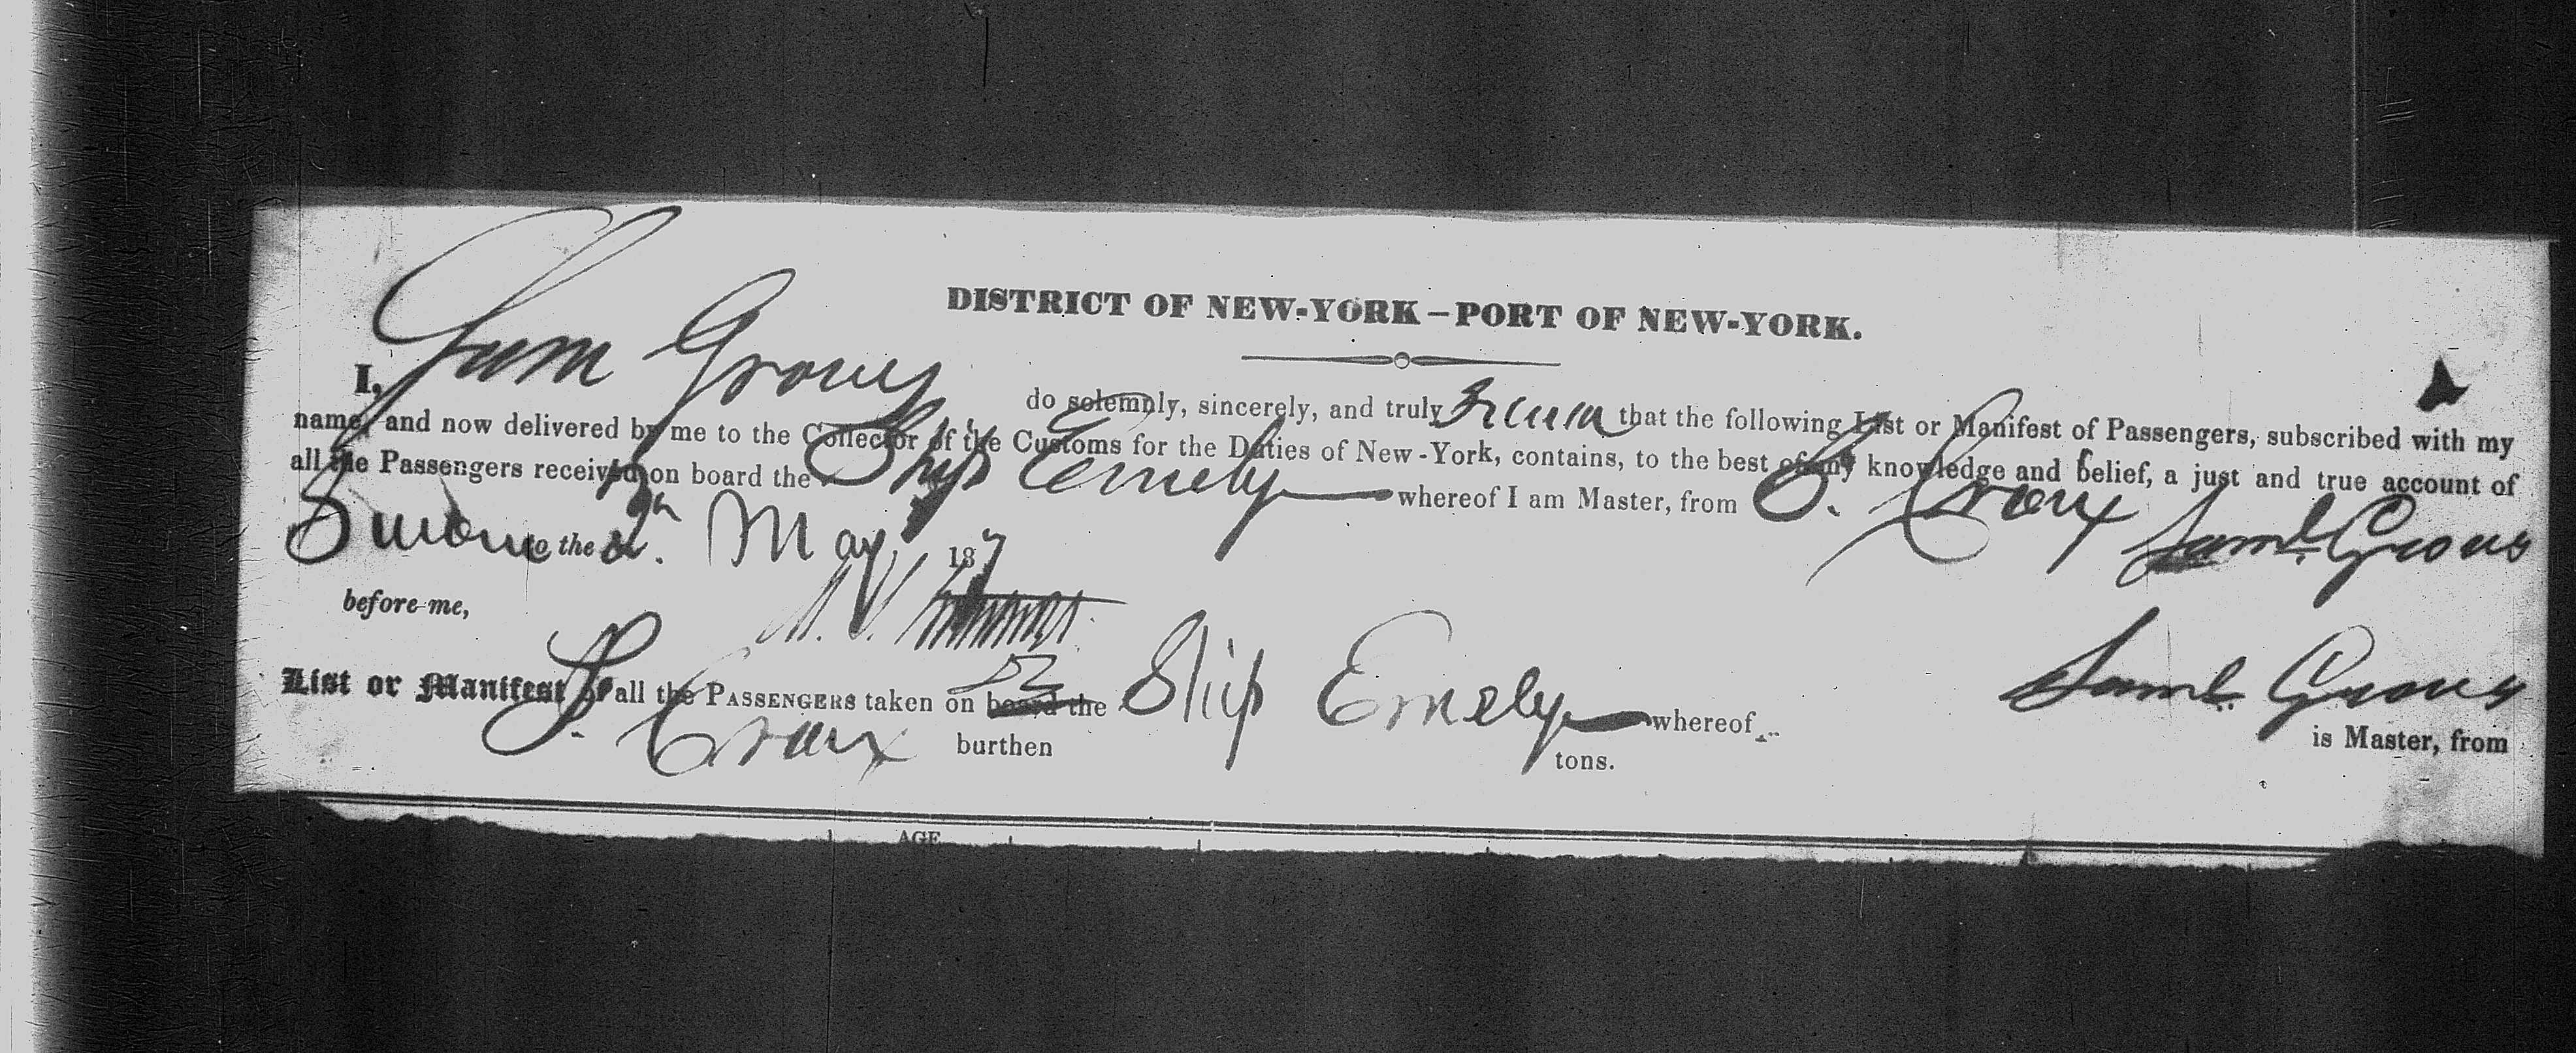 DISTRICT OF NEW-YORK–PORT OF NEW-YORK.
I, Sam do solemnly, sincerely, and truly that the following List or Manifest of Passengers, subscribed with my
name, and now delivered by me to the Collector of the Customs for the Duties of New-York, contains, to the best of my knowledge and belief, a just and true account of
all the Passengers received on board the Ship Emely whereof I am Master, from S. Croix
the May 187 Saml.
before me,
List or Manifest of all the PASSENGERS taken on board the Ship Emely whereof Saml.
S. Croix burthen tons. is Master, from
AGE